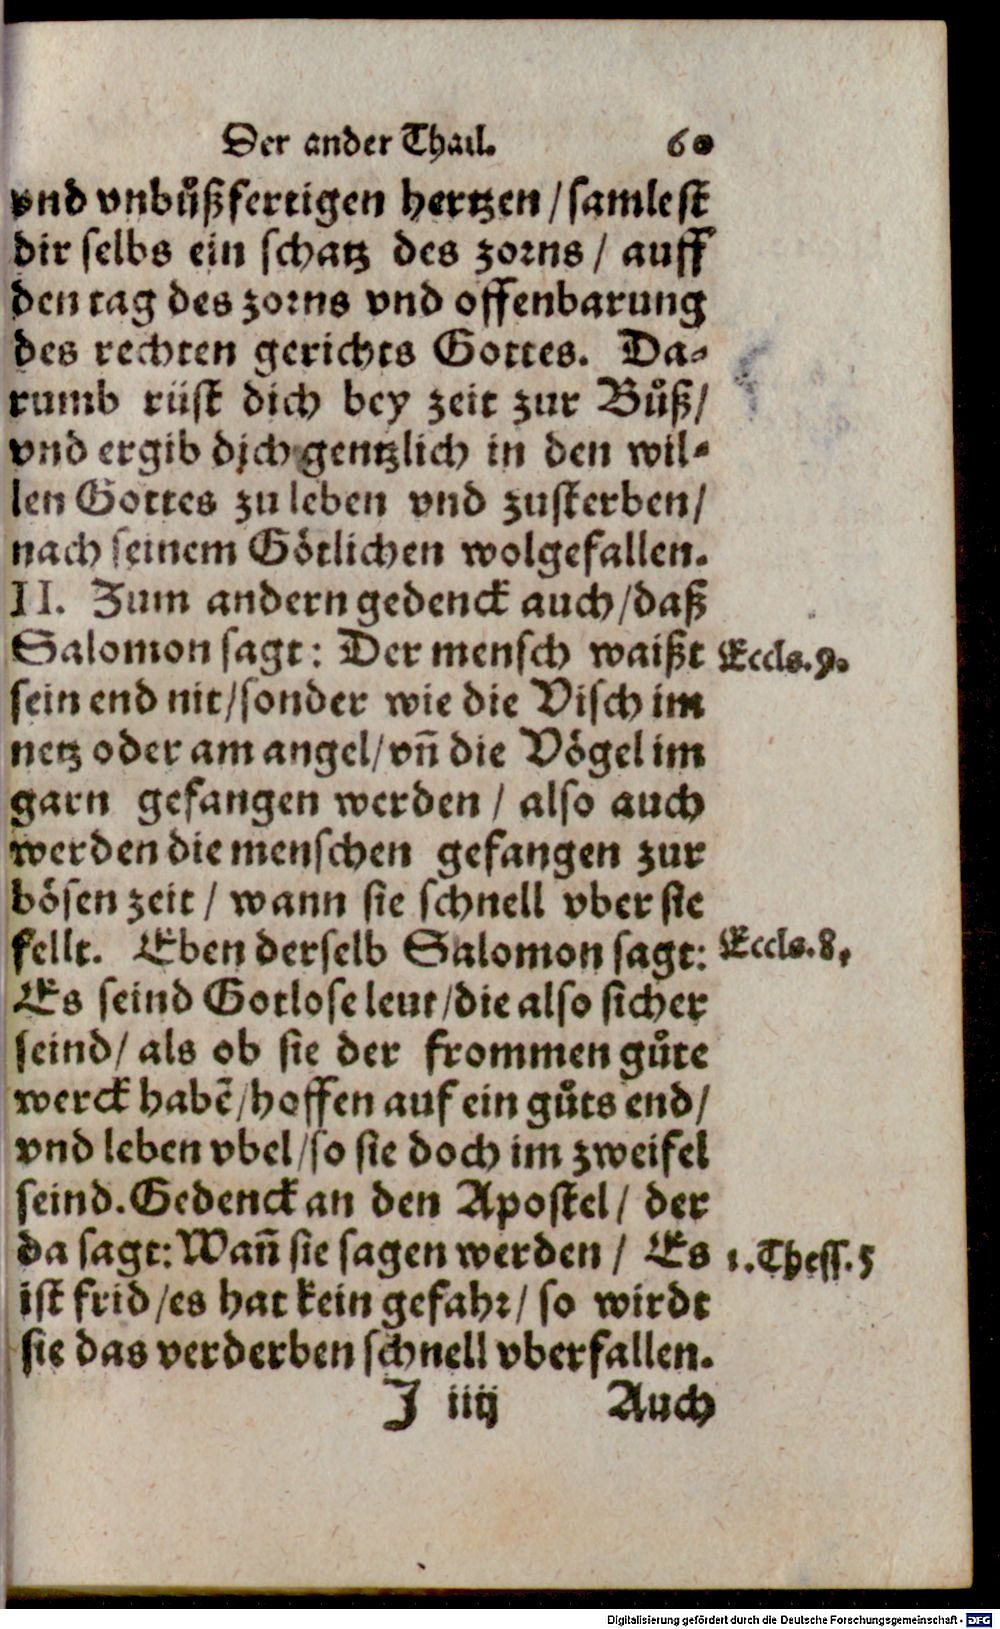 Der ander Thail. 60
vnd vnbůßfertigen hertzen / samlest
dir selbs ein schatz des zorns / auff
den tag des zorns vnd offenbarung
des rechten gerichts Gottes. Da-
rumb rüst dich bey zeit zur Bůß/
vnd ergib dich gentzlich in den wil-
len Gottes zu leben vnd zusterben/
nach seinem Götlichen wolgefallen.
II. Zum andern gedenck auch/daß
Salomon sagt: Der mensch waißt
Eccls. 9.
sein end nit/sonder wie die Visch im
netz oder am angel/vñ die Vögel im
garn gefangen werden / also auch
werden die menschen gefangen zur
bösen zeit / wann sie schnell vber sie
fellt. Eben derselb Salomon sagt:
Eccls. 8,
Es seind Gotlose leut/die also sicher
seind/ als ob sie der frommen gůte
werck habẽ/hoffen auf ein gůts end/
vnd leben vbel/so sie doch im zweifel
seind. Gedenck an den Apostel/ der
da sagt: Wañ sie sagen werden / Es
1. Thess. 5
ist frid/es hat kein gefahr/ so wirdt
sie das verderben schnell vberfallen.
J iiij Auch
Digitalisierung gefördert durch die Deutsche Forschungsgemeinschaft - DFG